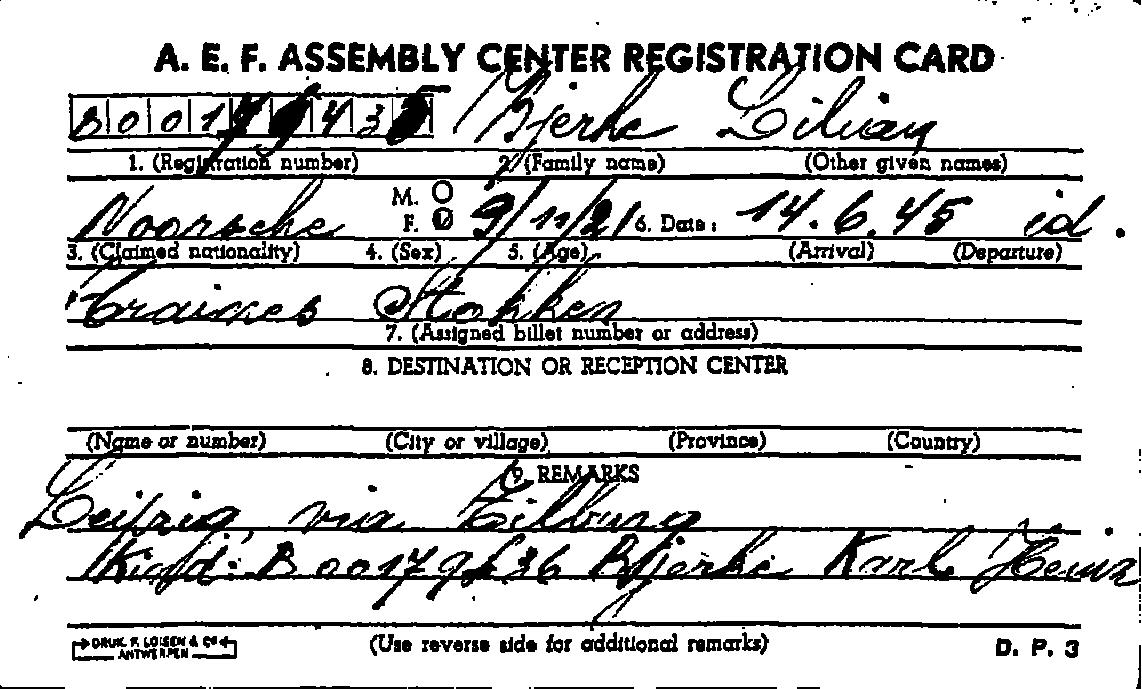 A. E. F. ASSEMBLY CENTER REGISTRATION CARD
B00179435 Bjerke Lilian
1. (Registration number) 2. (Family name) (Other given names)
Noorsche M. F. 9/11/21 6. Date: 14.6.45 id.
3. (Claimed nationality) 4. (Sex) 5. (Age) (Arrival) (Departure)
Stokken
7. (Assigned billet number or address)
8. DESTINATION OR RECEPTION CENTER
(Name or number) (City or village) (Province) (Country)
9. REMARKS
Leipzig via Tilburg
Kind: B00179436 Bjerke Karl Heinz
DRUK. F. LOISEN & Co ANTWERPEN (Use reverse side for additional remarks) D. P. 3